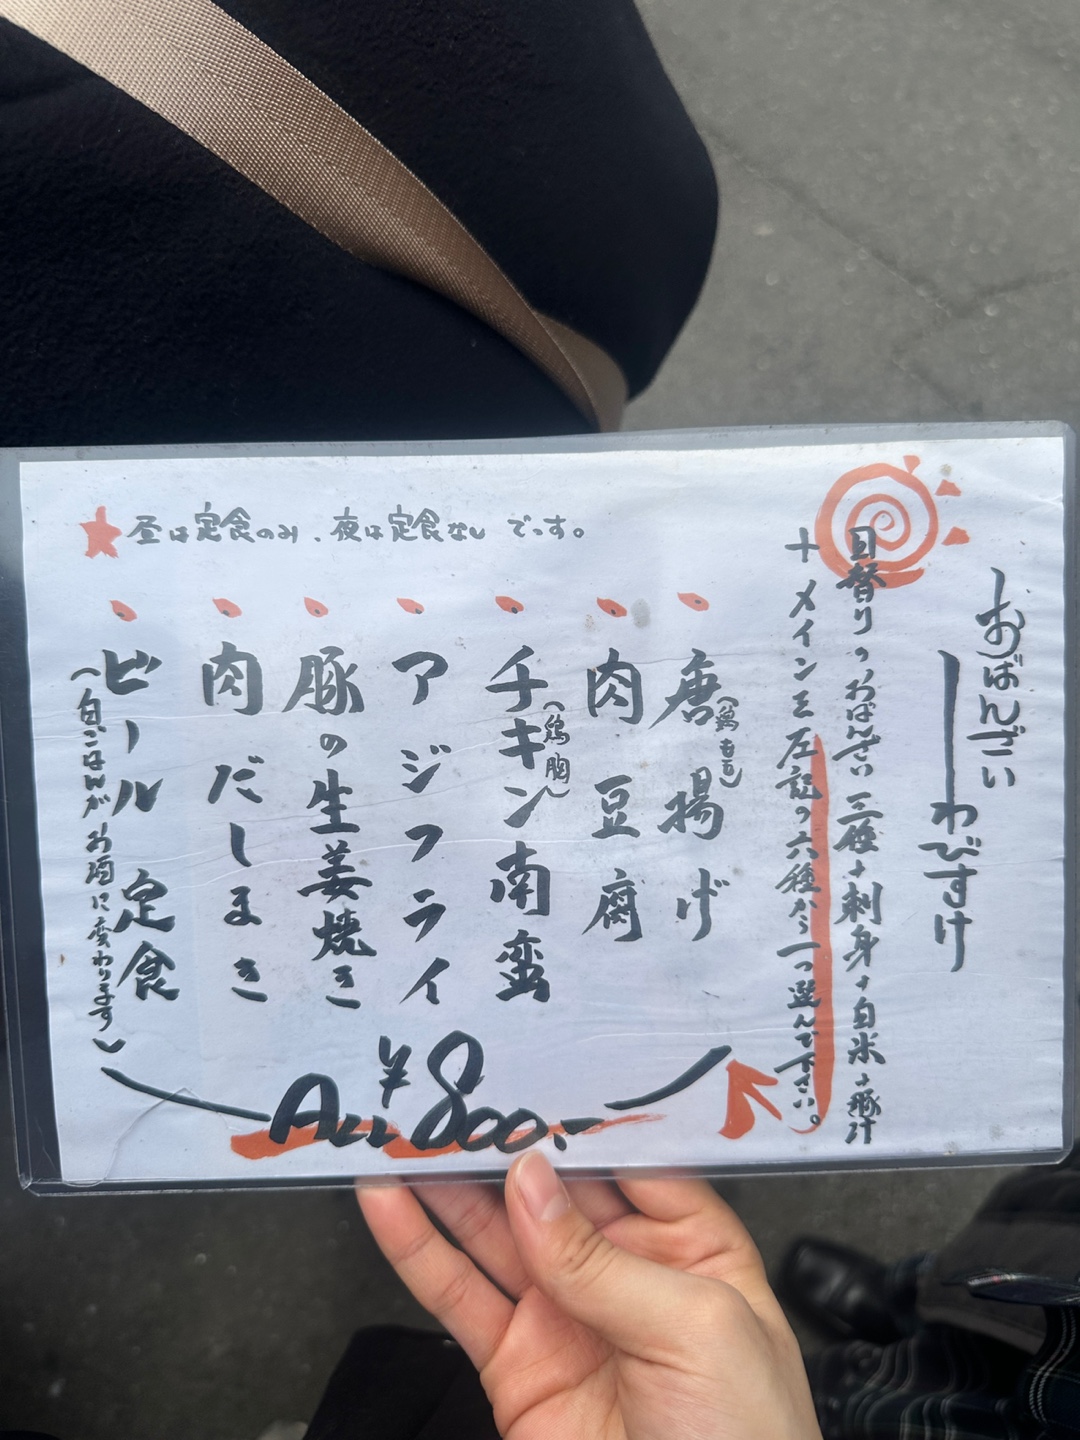 おばんざい
わびすけ
日替りのおばんざい三種+刺身+白米+豚汁
+メインを左記の六種から一つ選んで下さい。
唐揚げ
(鶏もも)
肉豆腐
チキン南蛮
(鶏胸)
アジフライ
豚の生姜焼き
肉だしまき
ビール定食
(白ごはんがお酒に変わります)
ALL ¥800.-
★昼は定食のみ、夜は定食なしでっす。